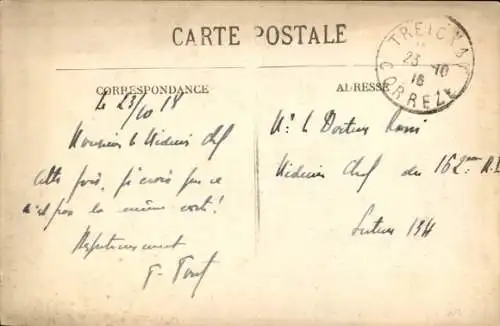 CARTE POSTALE
TREIGNAC
23 10
18
CORREZE
CORRESPONDANCE
ADRESSE
le 23/10 18
Monsieur le Médecin Chef
Cette fois, je crois que ce
n'est pas la même carte!
Respectueusement
Mr le Docteur
Médecin Chef du 162ème R.I
Secteur 134